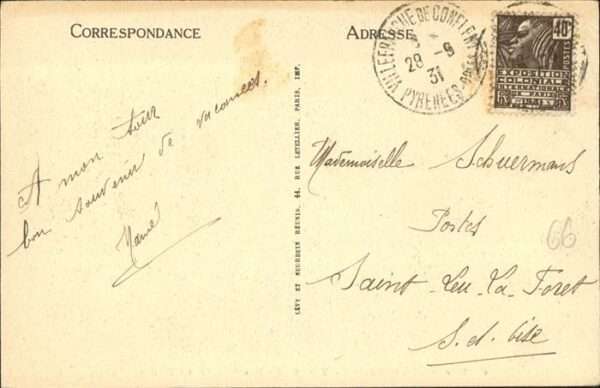 CORRESPONDANCE
ADRESSE
VILLEFRANCHE DE CONFLENT
28 -9
31
PYRENEES-ORles
40c
POSTES
EXPOSITION
COLONIALE
INTERNATIONALE
DE PARIS
1931
A mon tour
bon souvenir de vacances.
LÉVY ET NEURDEIN RÉUNIS, 44, RUE LETELLIER, PARIS, IMP.
Mademoiselle Schuermans
Postes
66
Saint-Leu-La-Foret
S. et Oise